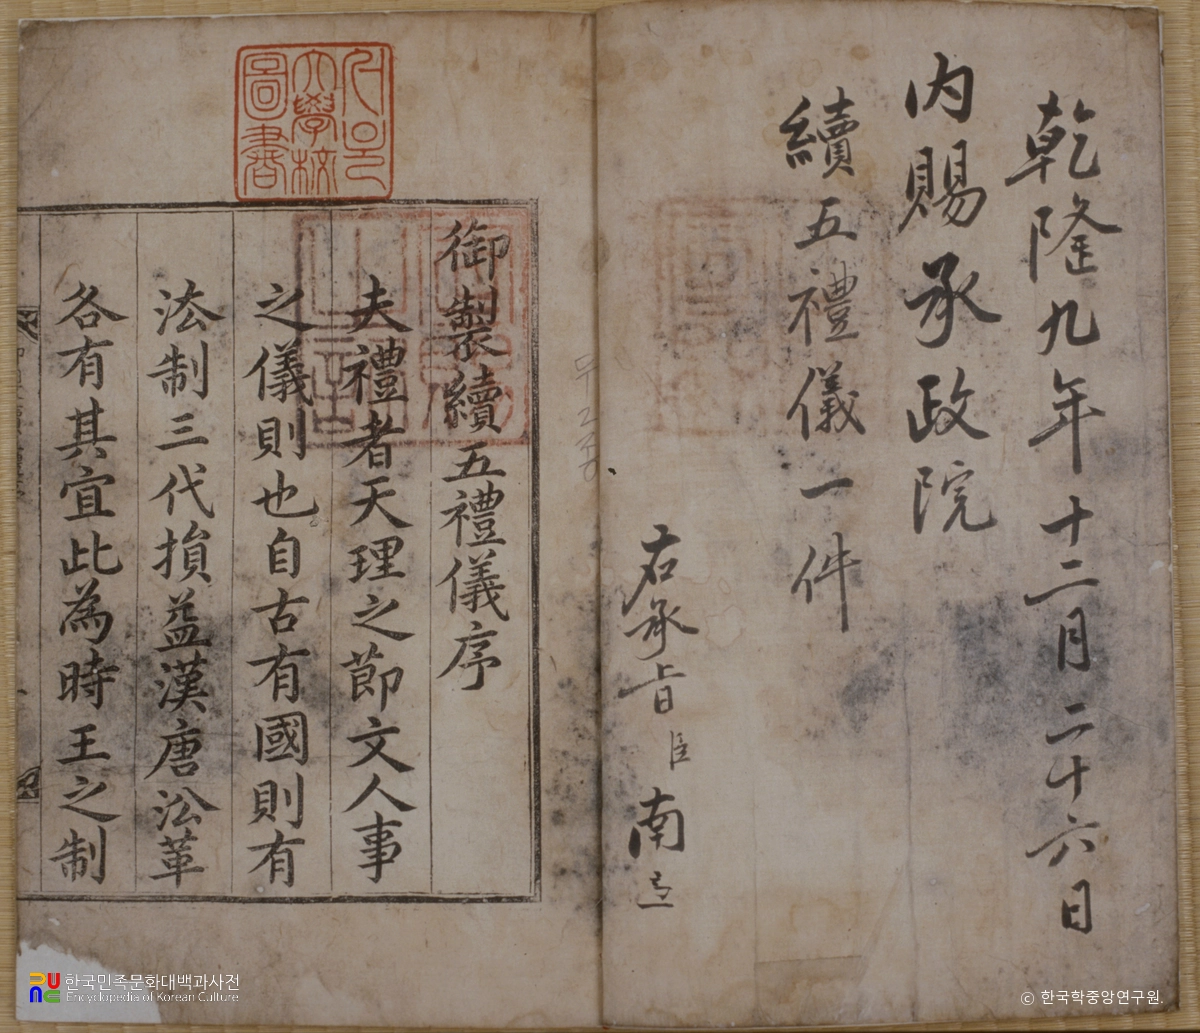 乾隆九年十二月二十六日
內賜承政院
續五禮儀一件
右承旨臣南
御製續五禮儀序
夫禮者天理之節文人事
之儀則也自古有國則有
法制三代損益漢唐沿革
各有其宜此為時王之制
大學校
圖書
한국민족문화대백과사전
Encyclopedia of Korean Culture
© 한국학중앙연구원.